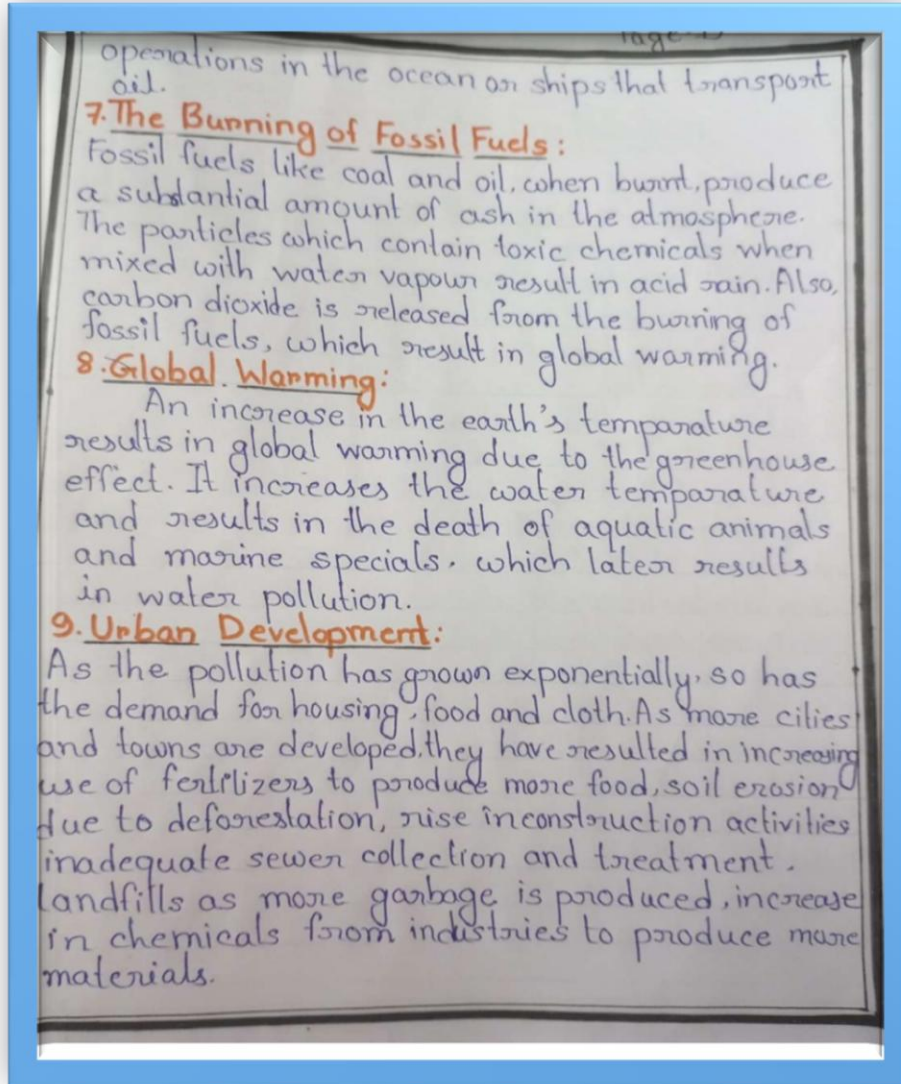 operations in the ocean or ships that transport
oil.
7. The Burning of Fossil Fuels:
Fossil fuels like coal and oil, when burnt, produce
a substantial amount of ash in the atmosphere.
The particles which contain toxic chemicals when
mixed with water vapour result in acid rain. Also,
carbon dioxide is released from the burning of
fossil fuels, which result in global warming.
8. Global Warming:
An increase in the earth's temparature
results in global warming due to the greenhouse
effect. It increases the water temparature
and results in the death of aquatic animals
and marine specials, which later results
in water pollution.
9. Urban Development:
As the pollution has grown exponentially, so has
the demand for housing, food and cloth. As more cities
and towns are developed, they have resulted in increasing
use of fertilizers to produce more food, soil erosion
due to deforestation, rise in construction activities
inadequate sewer collection and treatment.
Landfills as more garbage is produced, increase
in chemicals from industries to produce more
materials.